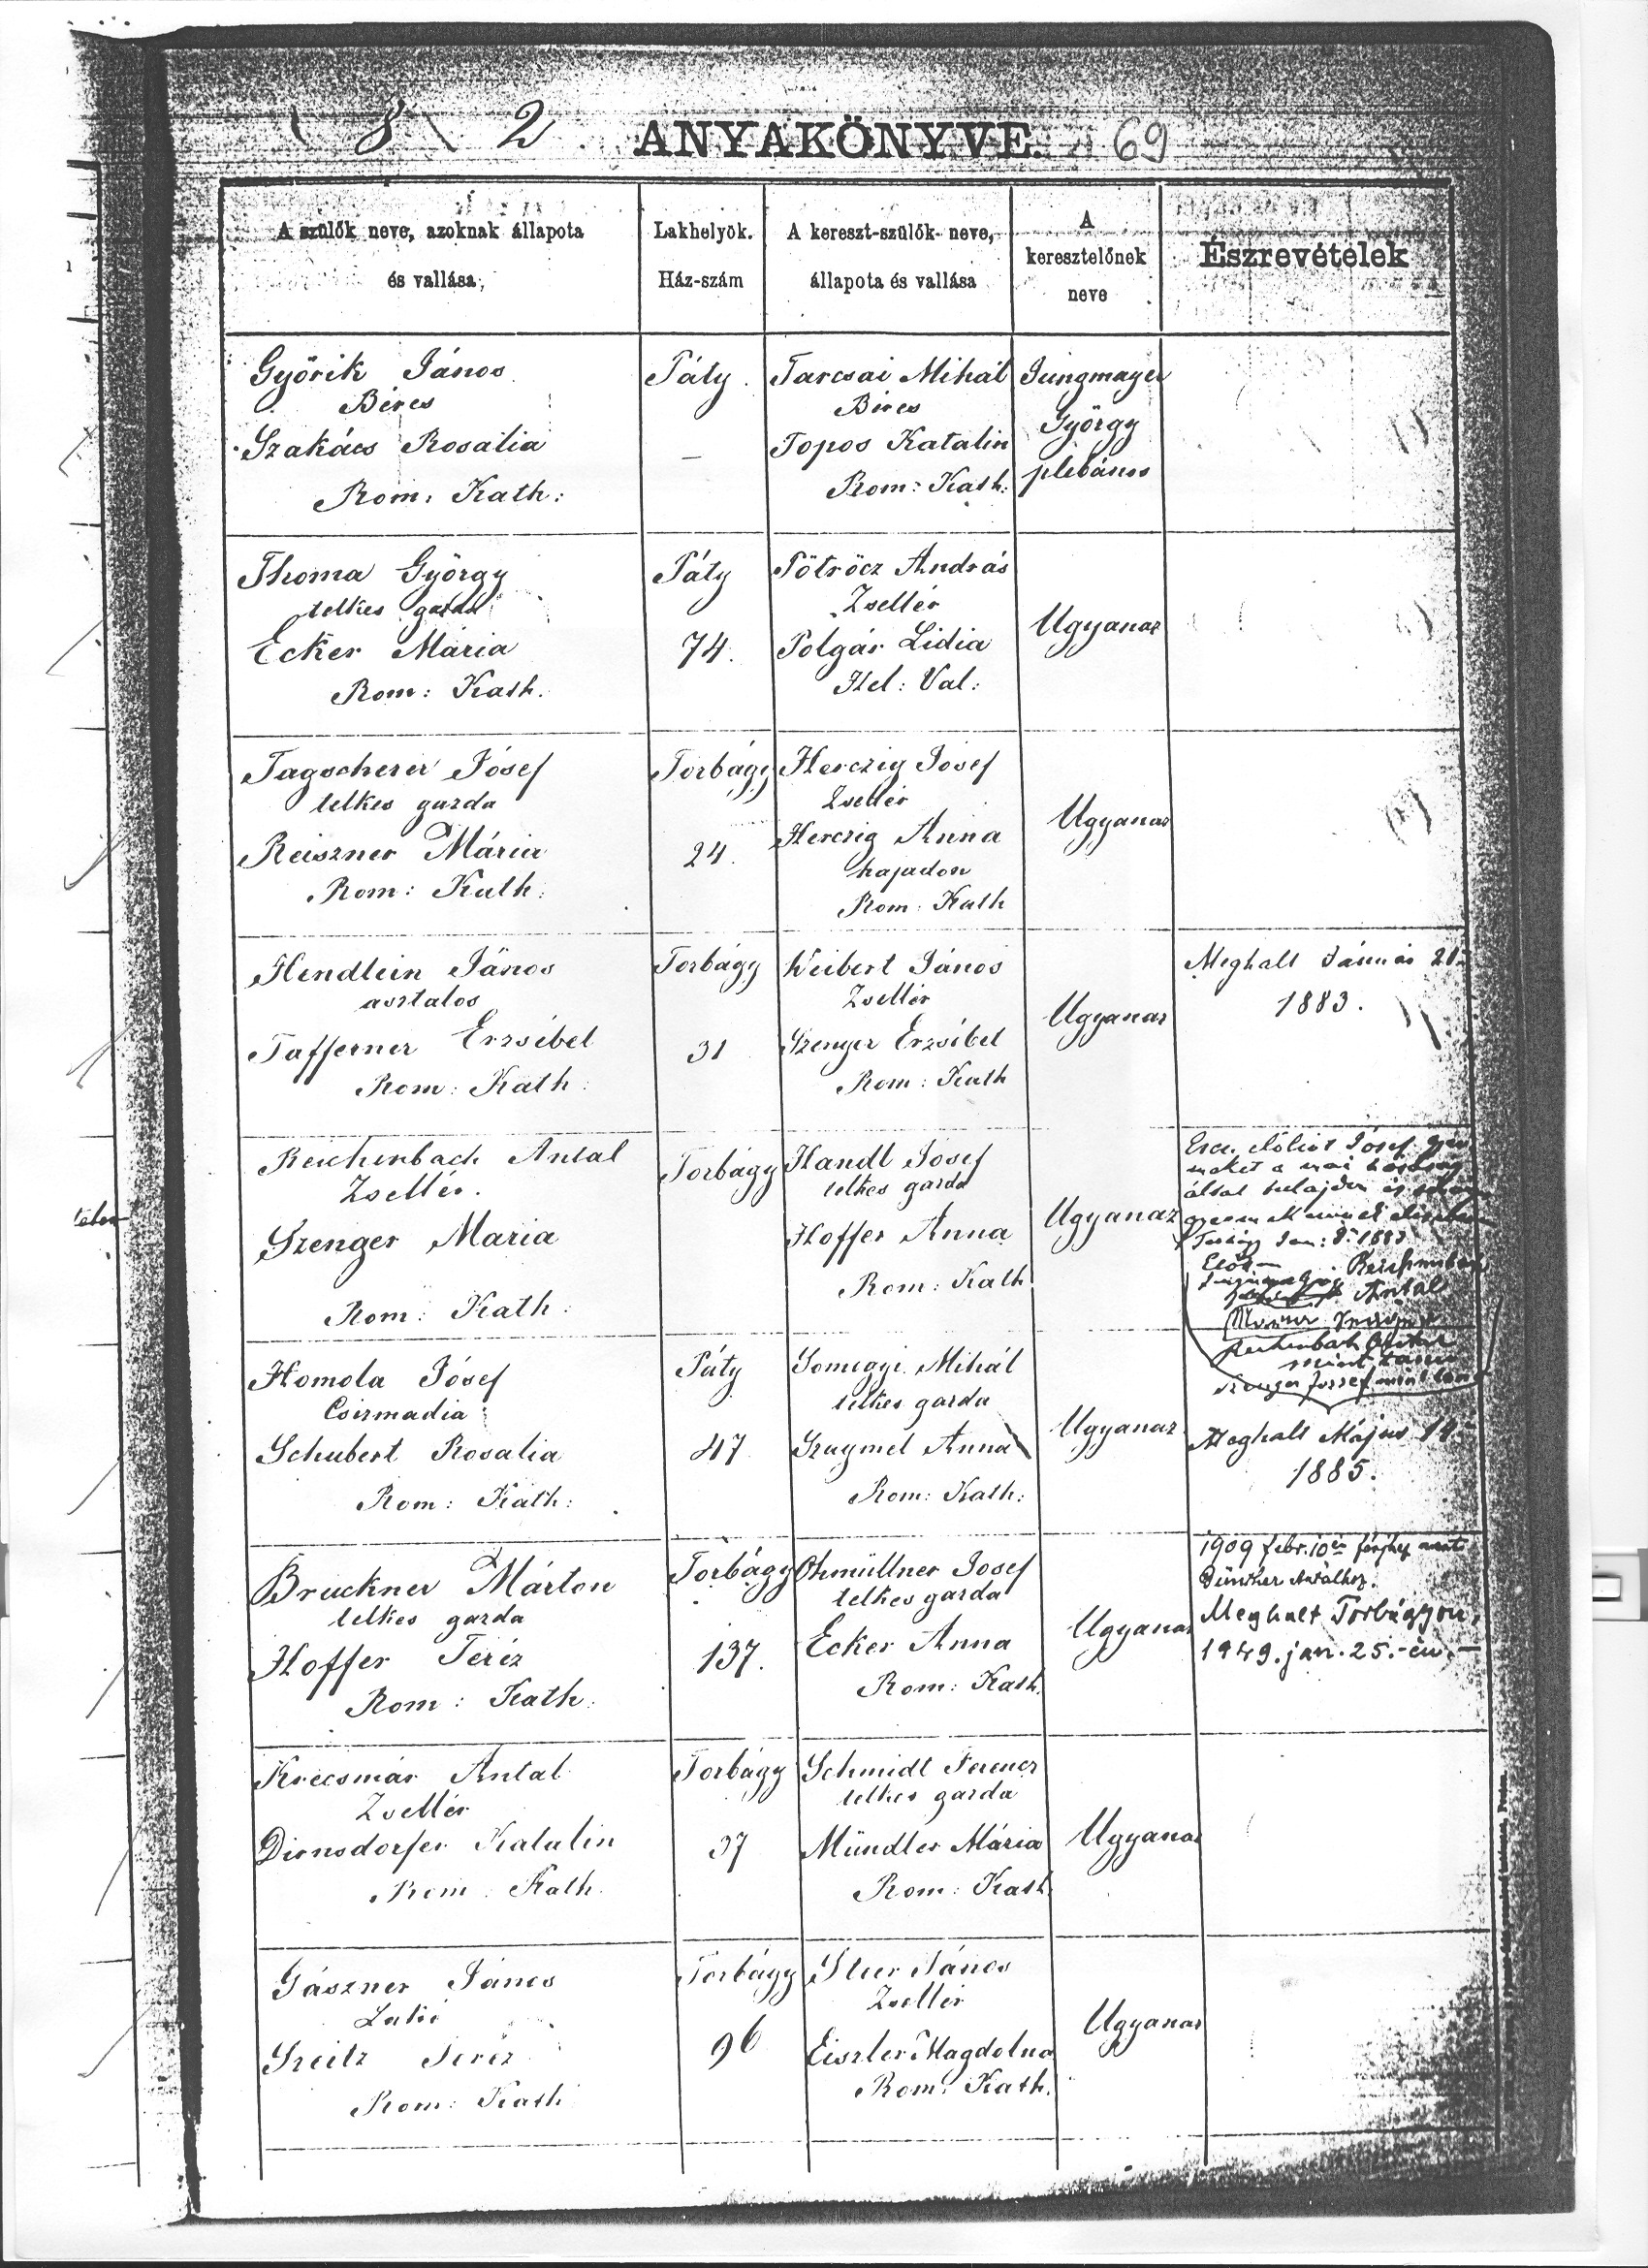 8 2 ANYAKÖNYVE. 69
A szülők neve, azoknak állapota
és vallása
Lakhelyök.
Ház-szám
A kereszt-szülők neve,
állapota és vallása
A
keresztelőnek
neve
Észrevételek
Győrik János
Béres
Szakács Rosália
Rom: Kath:
Páty.
—
Tarcsai Mihál
Béres
Topos Katalin
Rom: Kath:
Jungmayer
György
plébános
Thoma György
telkes gazda
Ecker Mária
Rom: Kath.
Páty
74.
Pötröcz András
Zsellér
Polgár Lidia
Hel: Val:
Ugyanaz
Tagscherer Jósef
telkes gazda
Reiszner Mária
Rom: Kath:
Torbágy
24.
Herczig Jósef
Zsellér
Herczig Anna
hajadon
Rom: Kath
Ugyanaz
Hendlein János
asztalos
Tafferner Erzsébet
Rom: Kath:
Torbágy
31
Weibert János
Zsellér
Szenger Erzsébet
Rom: Kath
Ugyanaz
Meghalt Január
1883.
Reichenbach Antal
Zsellér.
Szenger Maria
Rom: Kath:
Torbágy
Handl Jósef
telkes gazda
Hoffer Anna
Rom: Kath
Ugyanaz
Jósef
által
1883
Reichenbach
Antal
Reichenbach
mint tanu
József mint tanu
Homola Jósef
Csizmadia
Schubert Rosalia
Rom: Kath:
Páty
47
Somogyi Mihál
telkes gazda
Anna
Rom: Kath:
Ugyanaz
Meghalt Május
1885.
Bruckner Márton
telkes gazda
Hoffer Teréz
Rom: Kath:
Torbágy
137.
Ohmüllner Josef
telkes gazda
Ecker Anna
Rom: Kath.
Ugyanaz
1909 febr. 10én férjhez ment
Antalhoz.
Meghalt Torbágyon,
1949. jan. 25.-én.—
Krecsmár Antal
Zsellér
Dirnsdorfer Katalin
Rom: Kath.
Torbágy
37
Schmidt Ferencz
telkes gazda
Mündler Mária
Rom: Kath.
Ugyanaz
Gászner János
Szeitz Teréz
Rom: Kath
Torbágy
96
Stur János
Zsellér
Eiszler Magdolna
Rom: Kath.
Ugyanaz